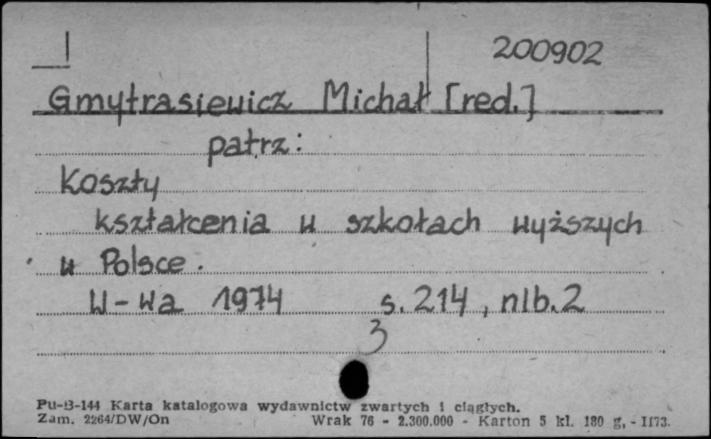 200902
Gmytrasiewicz Michał [red.]
patrz:
Koszty
kształcenia w szkołach wyższych
w Polsce.
W-wa 1974 s. 214, nlb. 2
3
Pu-B-144 Karta katalogowa wydawnictw zwartych i ciągłych.
Zam. 2264/DW/On Wrak 76 - 2.300.000 - Karton 5 kl. 180 g, - 1173.